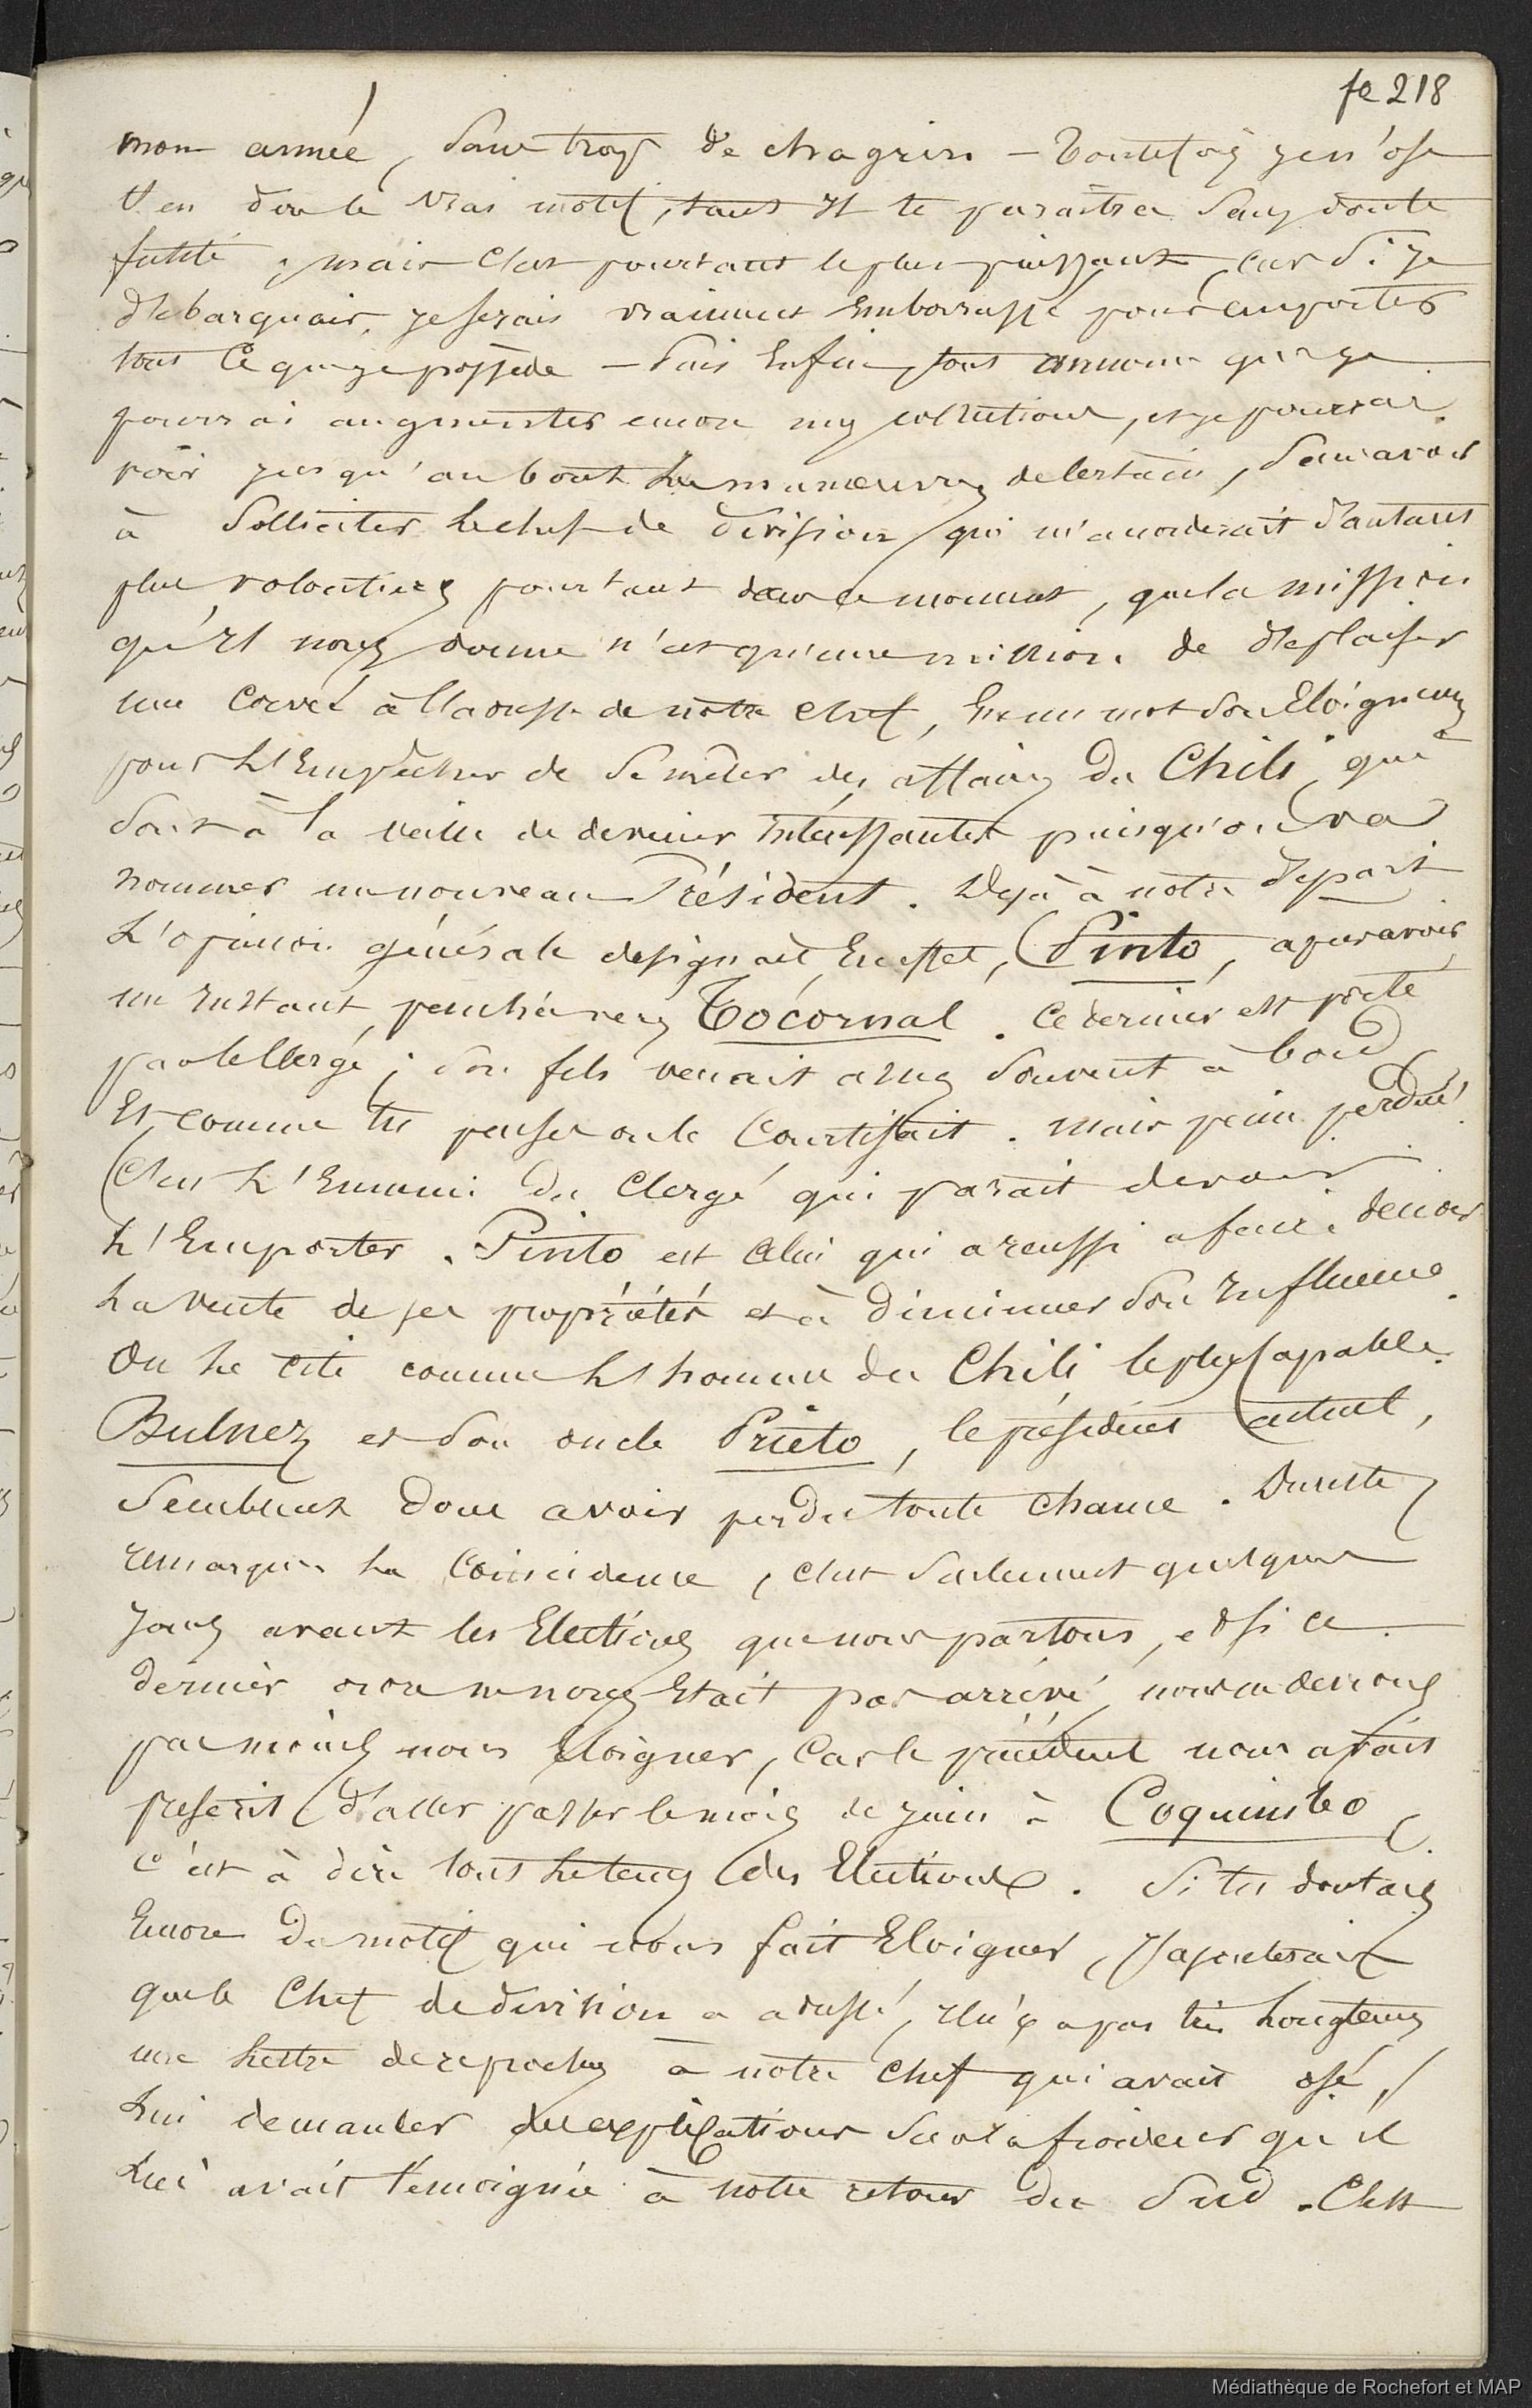 fe 218
mon armée, sans trop de chagrin — Toutefois je n'ose
t'en dire le vrai motif, tant il te paraîtra sans doute
futile ; mais c'est pourtant le plus puissant, car si je
débarquais, je serais vraiment embarrassé pour emporter
tout ce que je possède — Puis enfin, tout annonce que je
pourrai augmenter encore mes collections, et je pourrai
voir jusqu'au bout les manœuvres de l'estain, sans avoir
à solliciter le chef de division qui m'accorderait d'autant
plus volontiers pourtant dans ce moment, que la mission
qu'il nous donne n'est qu'une mission de déplaisir
une corvée à l'adresse de notre chef, en un mot son éloignement
pour l'empêcher de se mêler des affaires du Chili, qui
sont à la veille de devenir intéressantes puisqu'on va
nommer un nouveau Président. Déjà à notre départ
l'opinion générale désignait, en effet, Pinto, après avoir
un instant penché vers Tocornal. Ce dernier est porté
par le clergé ; son fils venait assez souvent à bord
et comme tu penses on le courtisait. Mais peine perdue !
C'est l'ennemi du Clergé qui parait devoir
l'emporter. Pinto est celui qui a réussi à faire
la vente de ses propriétés et à diminuer son influence.
On le cite comme l'homme du Chili le plus capable.
Bulnez et son oncle Prieto, le président actuel,
semblent donc avoir perdu toute chance. Du reste
remarque la coïncidence, c'est seulement quelques
jours avant les Elections que nous partons, et si ce
dernier ordre ne nous était pas arrivé, nous en devions
pas moins nous éloigner, car le précédent nous avait
prescrit d'aller passer le mois de juin à Coquimbo,
c'est à dire tout le temps des Elections. Si tu doutais
encore du motif qui nous fait éloigner, j'ajouterais
que le Chef de division a adressé, il n'y a pas très longtemps
une lettre de reproches à notre chef qui avait osé,
lui demander des explications sur la froideur qu'il
lui avait témoignée à notre retour du Sud. C'est
Médiathèque de Rochefort et MAP